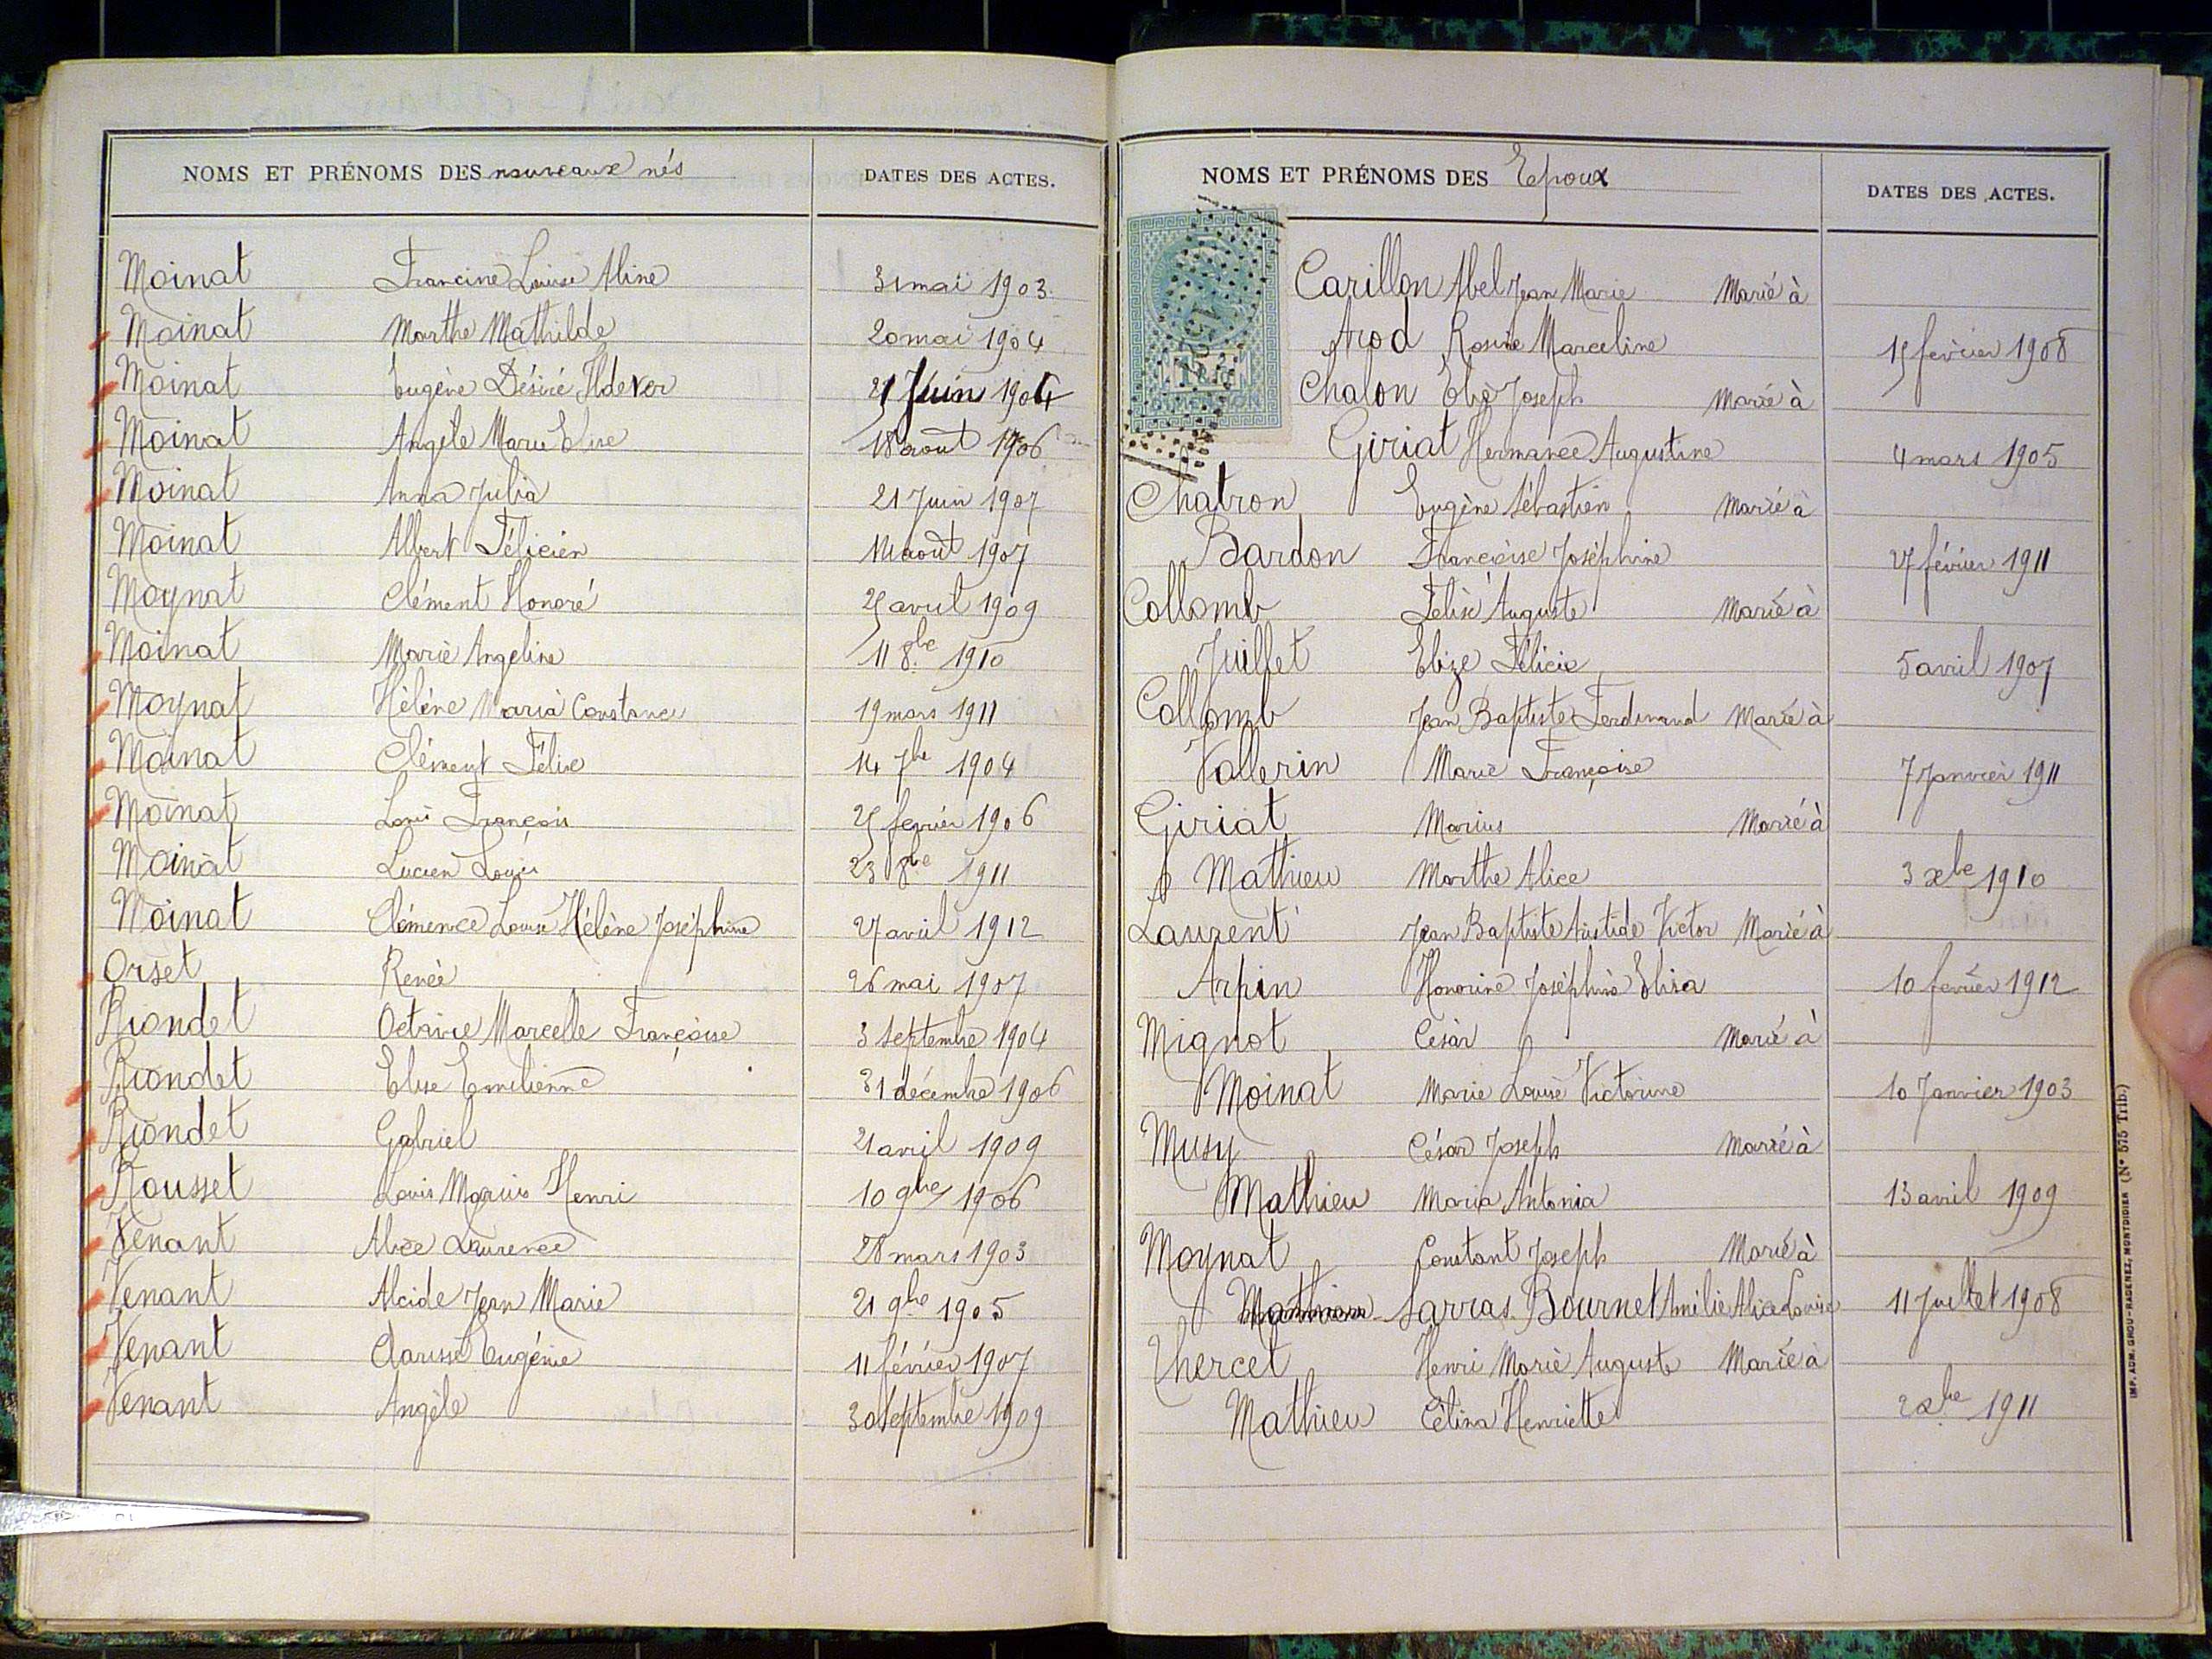 NOMS ET PRÉNOMS DES nouveaux nés DATES DES ACTES.
Moinat Francine Louise Aline 31 mai 1903
Moinat Marthe Mathilde 20 mai 1904
Moinat Eugène Désiré 21 Juin 1904
Moinat Angèle Marie Elise 18 août 1906
Moinat Anna Julia 21 Juin 1907
Moinat Albert Félicien août 1907
Moynat Clément Honoré 25 avril 1909
Moinat Marie Angeline 11 8.be 1910
Moynat Hélène Maria Constance 19 mars 1911
Moinat Clément Félix 14 7be 1904
Moinat Louis François 25 février 1906
Moinat Lucien Louis 23 8be 1911
Moinat Clémence Louise Hélène Joséphine 27 avril 1912
Orset Renée 26 mai 1907
Riondet Octavie Marcelle Françoise 3 septembre 1904
Riondet Elise Emilienne 31 décembre 1906
Riondet Gabriel 21 avril 1909
Rousset Louis Marius Henri 10 9be 1906
Venant Alice Laurence 28 mars 1903
Venant Alcide Jean Marie 21 9be 1905
Venant Clarisse Eugénie 11 février 1907
Venant Angèle 30 septembre 1909
NOMS ET PRÉNOMS DES Epoux DATES DES ACTES.
Carillon Abel Jean Marie Marié à
Arod Rosine Marceline 15 février 1908
Chalon Elie Joseph Marié à
Giriat Hermance Augustine 4 mars 1905
Chatron Eugène Sébastien Marié à
Bardon Françoise Joséphine 27 février 1911
Collomb Félix Auguste Marié à
Juillet Elize Félicie 5 avril 1907
Collomb Jean Baptiste Ferdinand Marié à
Vallerin Marie Françoise 7 Janvier 1911
Giriat Marius Marié à
Mathieu Marthe Alice 3 xbe 1910
Laurent Jean Baptiste Aristide Victor Marié à
Arpin Honorine Joséphine Elisa 10 février 1912
Mignot César Marié à
Moinat Marie Louise Victorine 10 Janvier 1903
Musy César Joseph Marié à
Mathieu Maria Antonia 13 avril 1909
Moynat Constant Joseph Marié à
Sarras Bournet Amélie Alice Louise 11 Juillet 1908
Thercet Henri Marie Auguste Marié à
Mathieu Célina Henriette 2 xbe 1911
IMP. ADM. GROU-RADENEZ, MONTDIDIER (N° 575 Trib.)